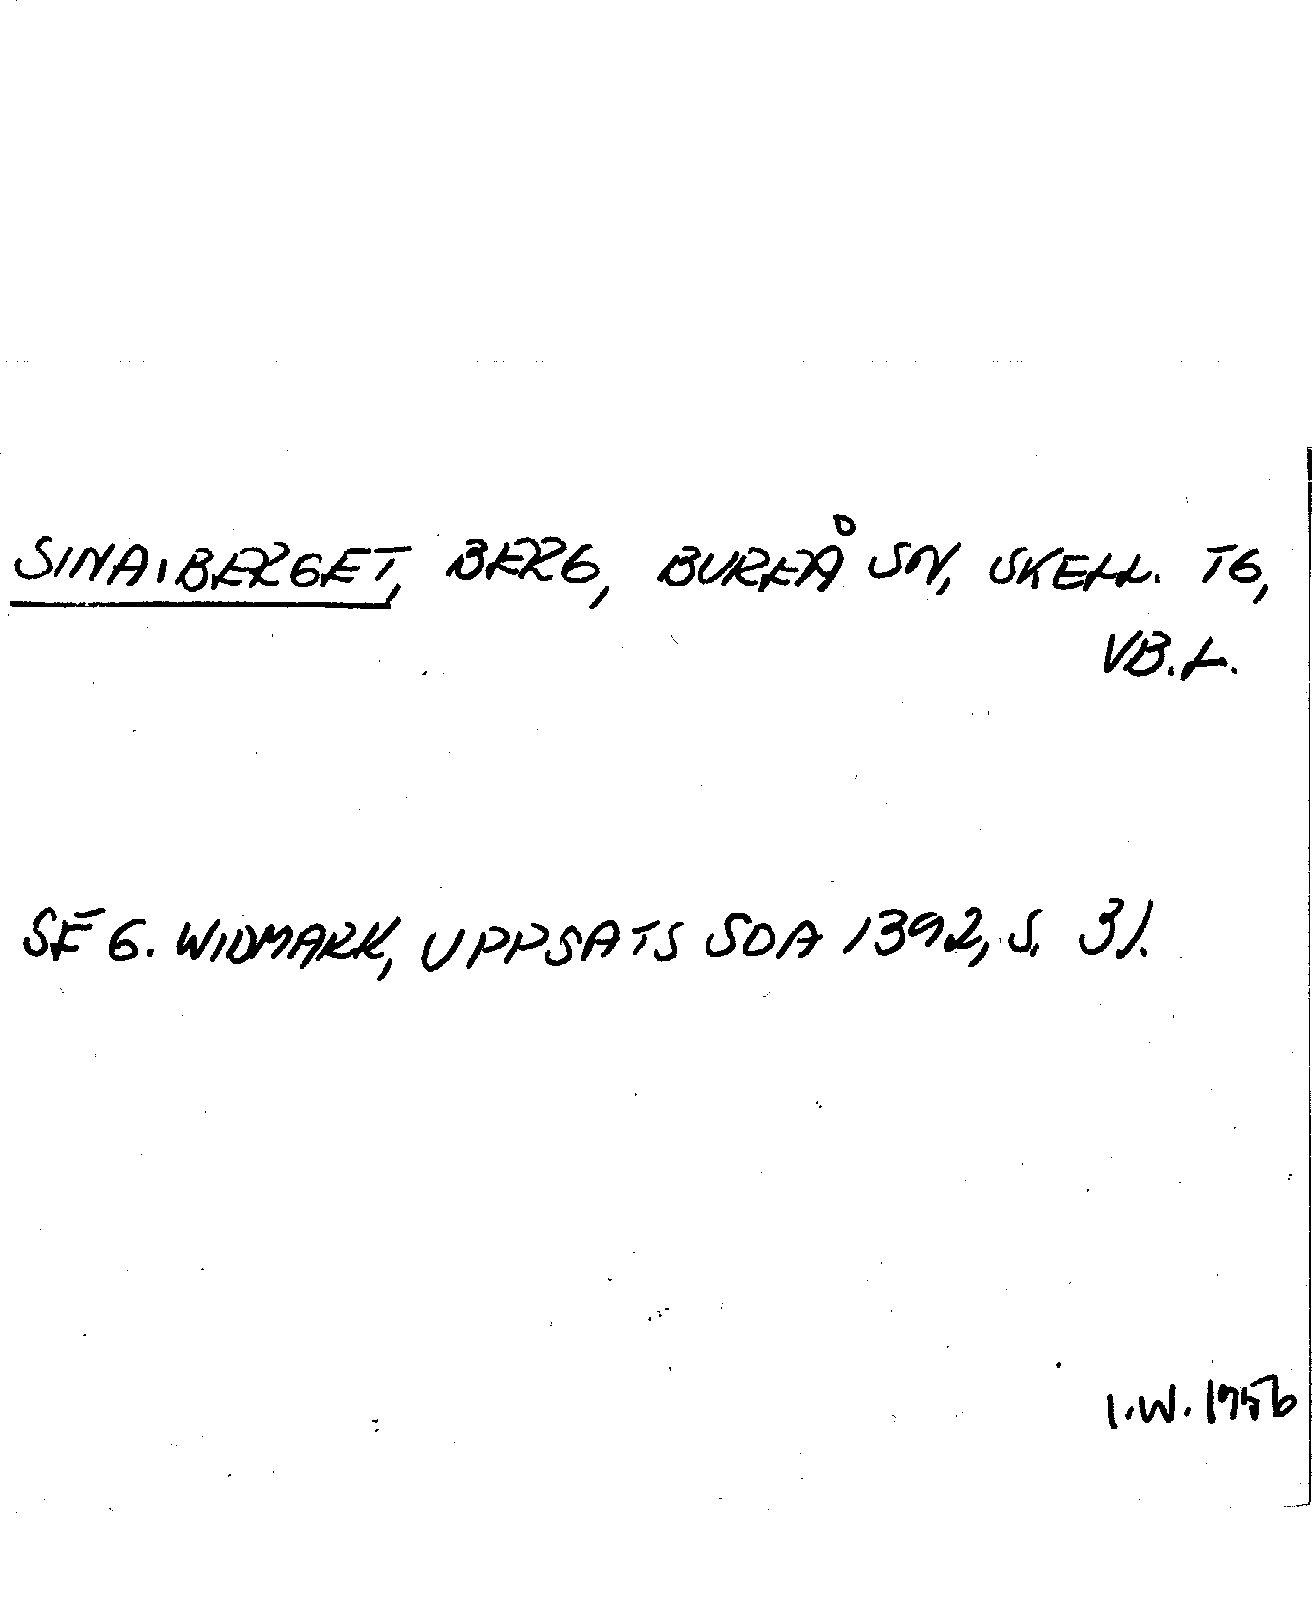 SINAIBERGET, BERG, BUREÅ SN, SKELL. TG,
VB.L.
SE G. WIDMARK, UPPSATS SOA 1392, S. 31.
I.W. 1956